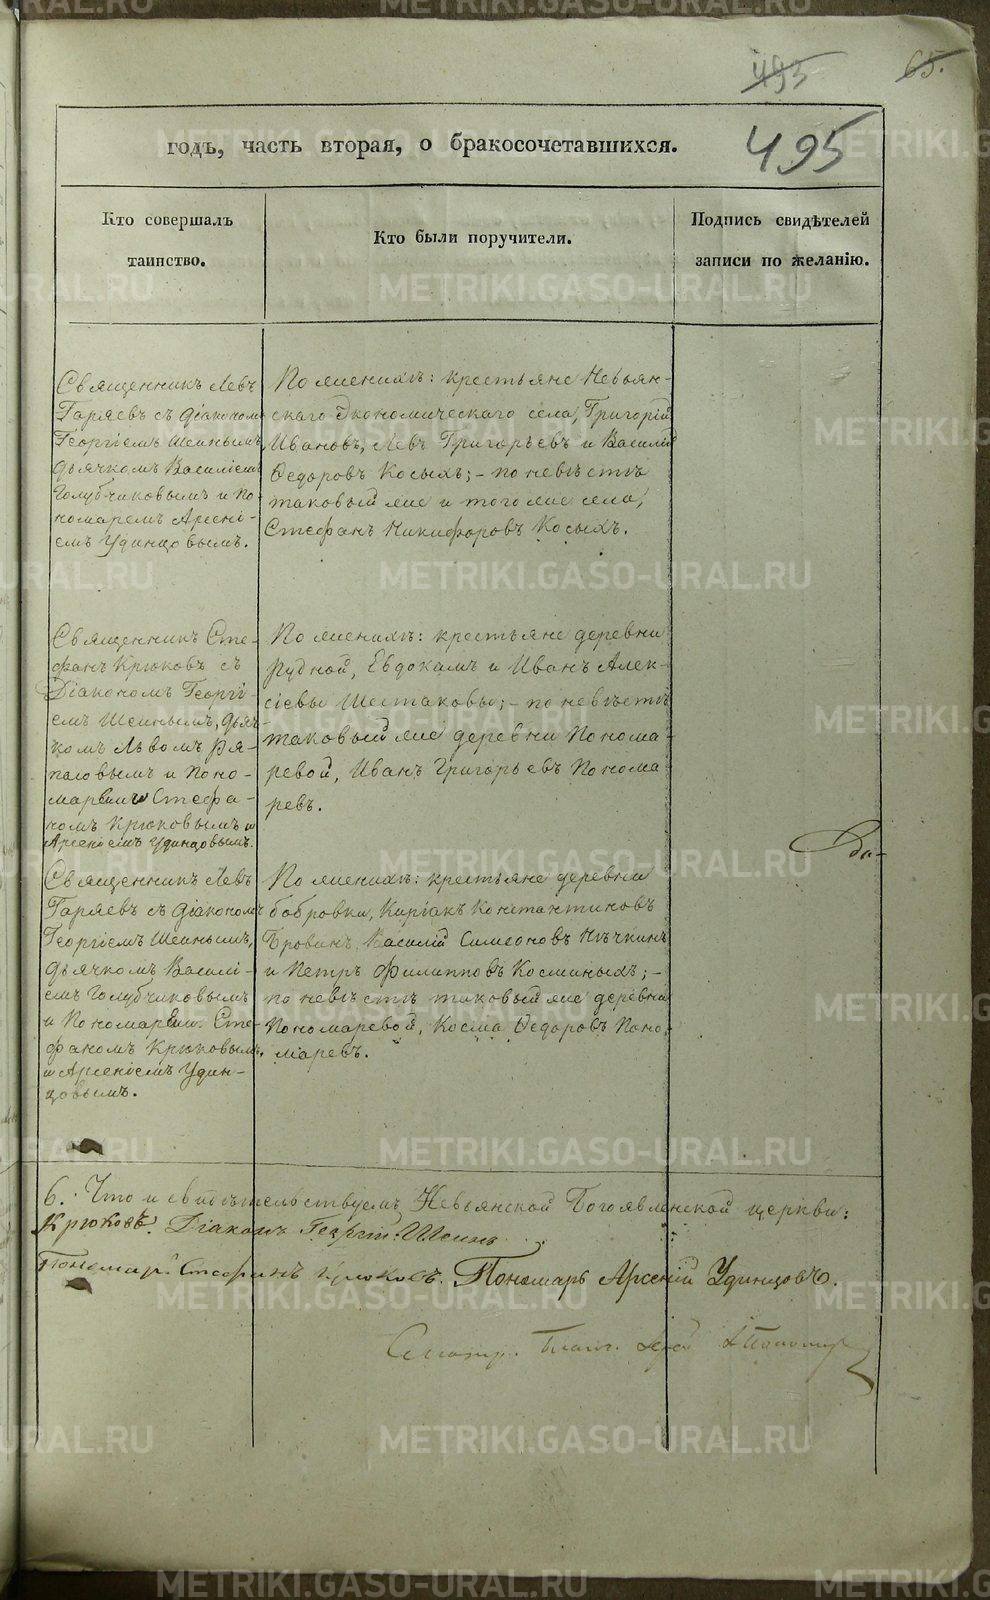 493
65.
годъ, часть вторая, о бракосочетавшихся.
495
Кто совершалъ
таинство.
Кто были поручители.
Подпись свидѣтелей
записи по желанію.
Священникъ Левъ
Гаряевъ съ діакономъ
Георгіемъ Шеинымъ,
дьячкомъ Василіемъ
Голубчиковымъ и По-
номаремъ Арсені-
емъ Удинцовымъ.
По женихѣ: крестьяне Невьян-
скаго Экономическаго села, Григорій
Ивановъ, Левъ Григорьевъ и Василій
Ѳедоровъ Косыхъ; - по невѣстѣ
таковый же и того же села,
Стефанъ Никифоровъ Косыхъ.
Священникъ Сте-
фанъ Крюковъ съ
Діакономъ Георгі-
емъ Шеинымъ, дьяч-
комъ Львомъ Ря-
пасовымъ и Поно-
марями Стефа-
номъ Крюковымъ и
Арсеніемъ Удинцовымъ.
По женихѣ: крестьяне деревни
Рудной, Евдокимъ и Иванъ Алек-
сіевы Шестаковы; - по невѣстѣ
таковый же деревни Понома-
ревой, Иванъ Григорьевъ Понома-
ревъ.
Священникъ Левъ
Гаряевъ съ діакономъ
Георгіемъ Шеинымъ,
дьячкомъ Василі-
емъ Голубчиковымъ
и Пономарями Сте-
фаномъ Крюковымъ,
и Арсеніемъ Удин-
цовымъ.
По женихѣ: крестьяне деревни
Бобровки, Киріакъ Константиновъ
Бровинъ, Василій Симеоновъ Нѣчкинъ
и Петръ Филипповъ Косминыхъ; -
по невѣстѣ таковый же деревни
Пономаревой, Косма Ѳедоровъ Поно-
маревъ.
6. Что и свидѣтельствуемъ Невьянской Богоявленской церкви:
Крюковъ. Діаконъ Георгій Шеинъ
Пономарь Стефанъ Крюковъ. Пономарь Арсеній Удинцовъ.